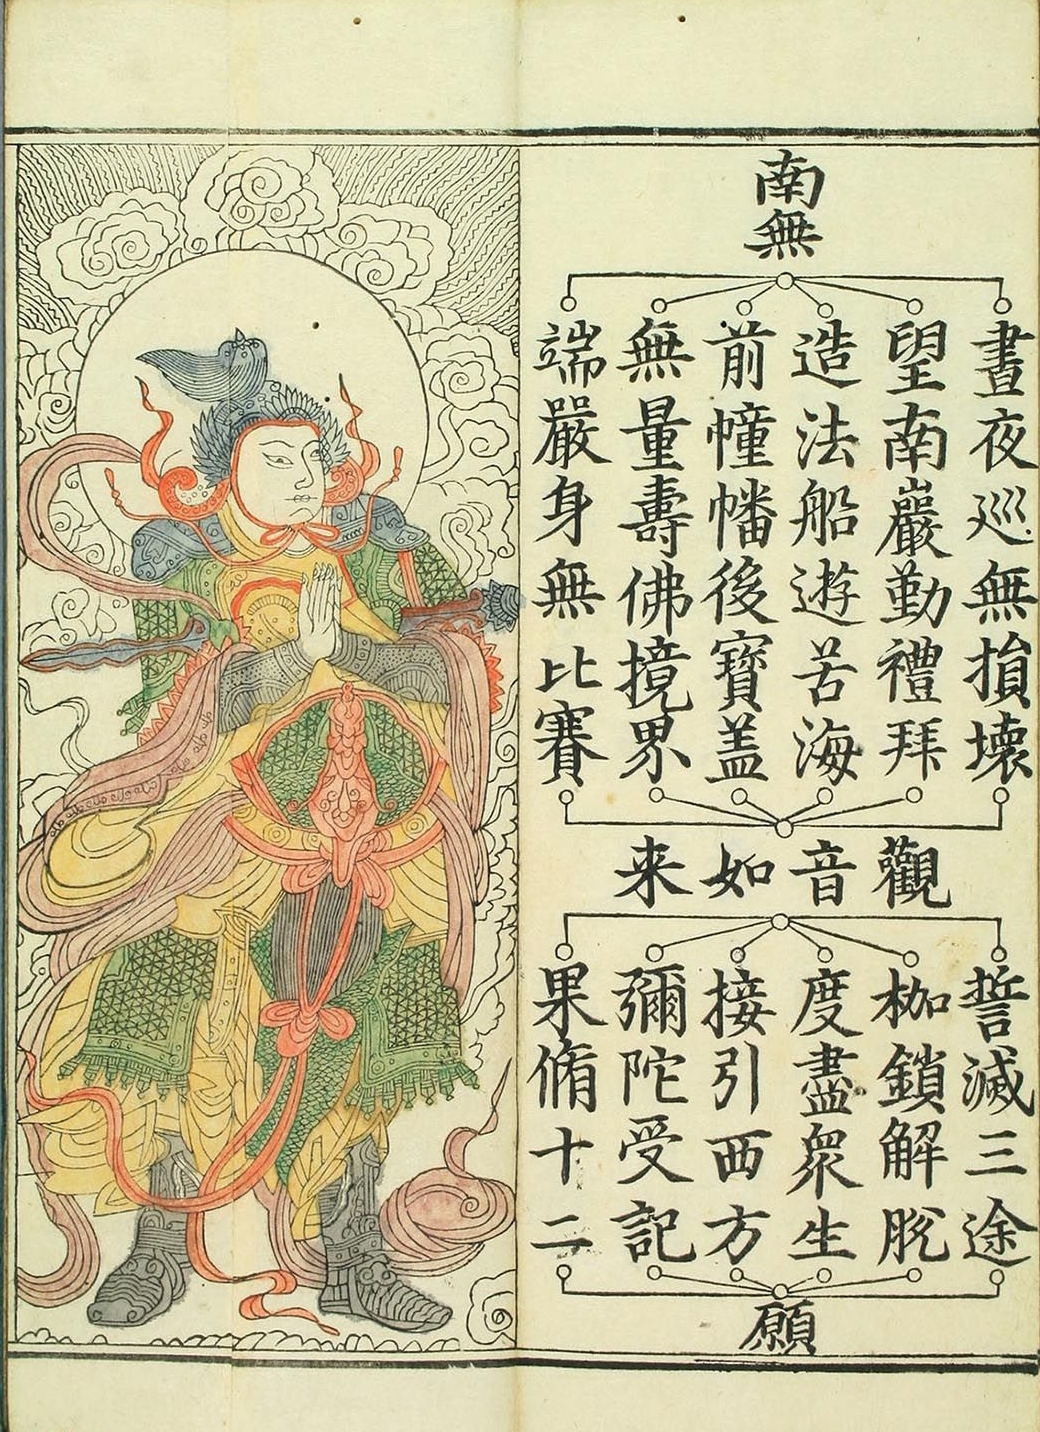 南無
晝夜巡無損壞
望南巖勤禮拜
造法船遊苦海
前幢幡後寶盖
無量壽佛境界
端嚴身無比賽
觀音如来
誓滅三途
枷鎖解脫
度盡衆生
接引西方
彌陀受記
果脩十二
願